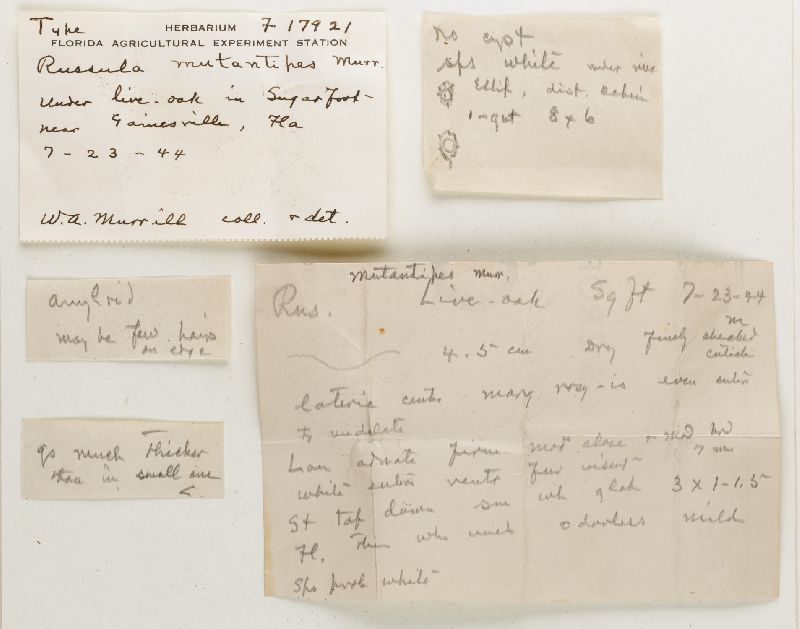 Type HERBARIUM F 17921
FLORIDA AGRICULTURAL EXPERIMENT STATION
Russula mutantipes Murr.
Under live-oak in Sugarfoot-
near Gainesville, Fla
7-23-44
W.A. Murrill coll. & det.
No cyst
sps white under
Ellip, dist. echin
1-gut 8 x 6
amyloid
may be few hairs
on edge
gs much thicker
than in small one
mutantipes Murr.
Rus. Live-oak Sq Ft 7-23-44
4.5 cm Dry finely checked
cuticle
lateric center marg is even entire
to undulate
Lam adnate firm close & med
white entire ventr few
St tap down sm wh glab 3 x 1-1.5
Fl. Thin wh odorless mild
Sps white